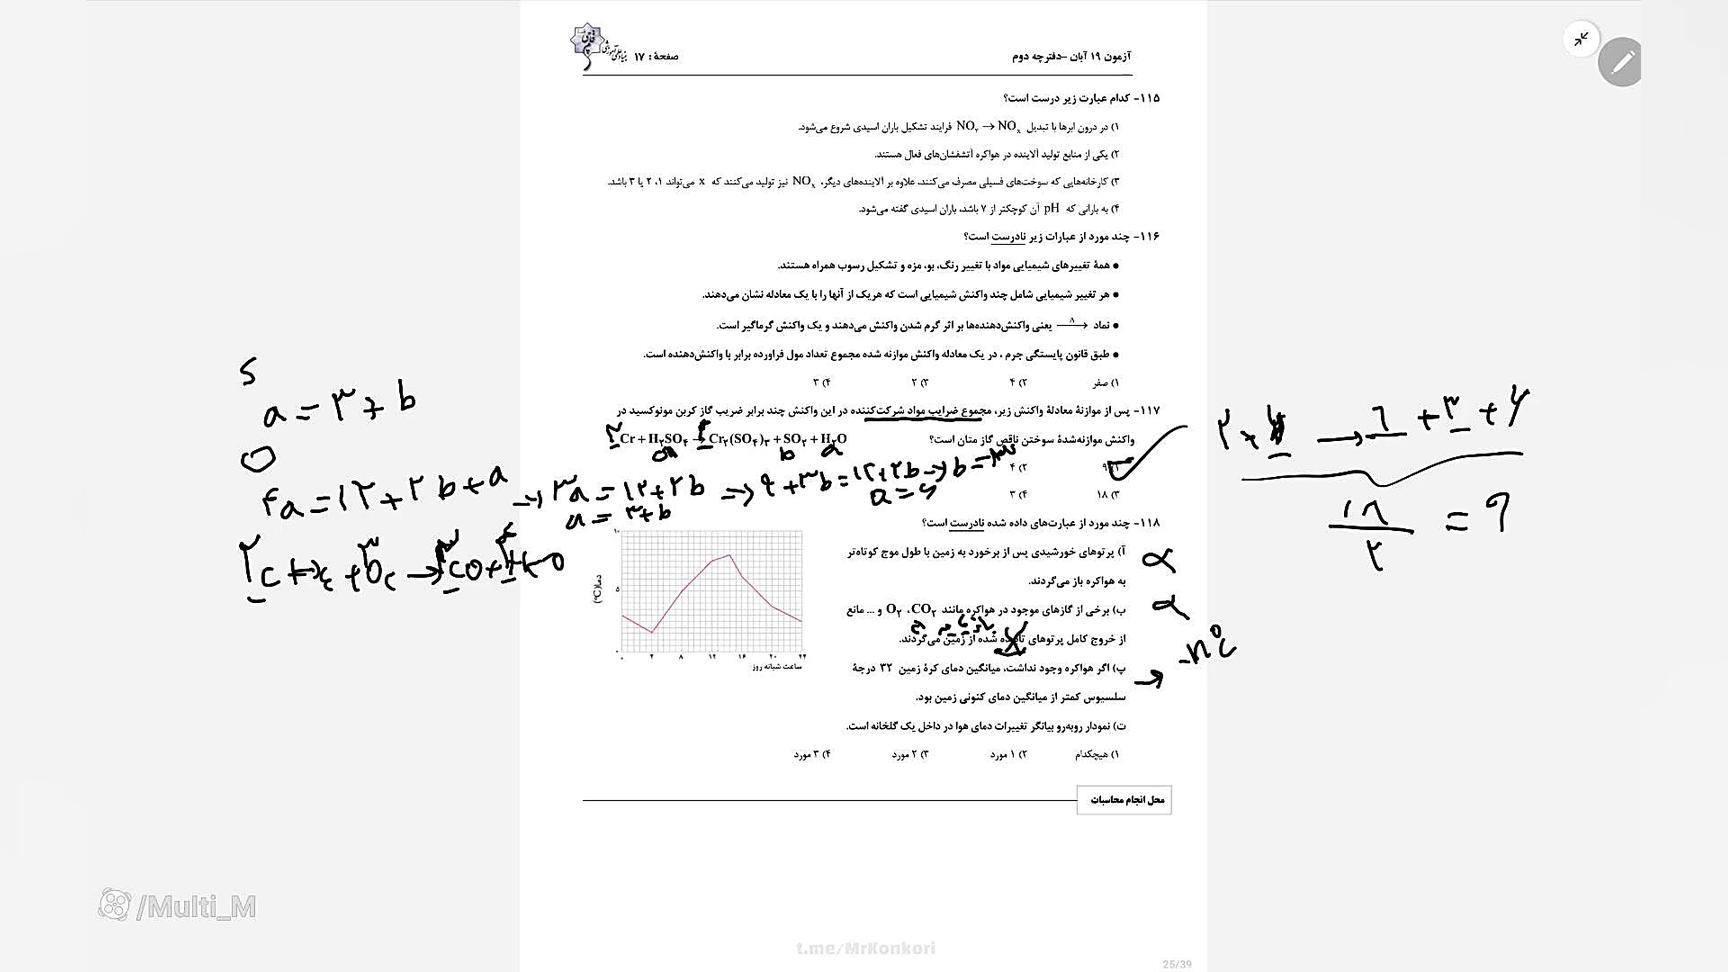 آزمون ۱۹ آبان -دفترچه دوم
صفحهٔ: ۱۷
۱۱۵- کدام عبارت زیر درست است؟
۱) در درون ابرها با تبدیل NO۲ → NOx فرایند تشکیل باران اسیدی شروع می‌شود.
۲) یکی از منابع تولید آلاینده در هواکره آتشفشان‌های فعال هستند.
۳) کارخانه‌هایی که سوخت‌های فسیلی مصرف می‌کنند، علاوه بر آلاینده‌های دیگر، NOx نیز تولید می‌کنند که x می‌تواند ۱، ۲ یا ۳ باشد.
۴) به بارانی که pH آن کوچکتر از ۷ باشد، باران اسیدی گفته می‌شود.
۱۱۶- چند مورد از عبارات زیر نادرست است؟
● همهٔ تغییرهای شیمیایی مواد با تغییر رنگ، بو، مزه و تشکیل رسوب همراه هستند.
● هر تغییر شیمیایی شامل چند واکنش شیمیایی است که هریک از آنها را با یک معادله نشان می‌دهند.
● نماد Δ→ یعنی واکنش‌دهنده‌ها بر اثر گرم شدن واکنش می‌دهند و یک واکنش گرماگیر است.
● طبق قانون پایستگی جرم ، در یک معادله واکنش موازنه شده مجموع تعداد مول فراورده برابر با واکنش‌دهنده است.
۱) صفر ۲) ۴ ۳) ۲ ۴) ۳
۱۱۷- پس از موازنهٔ معادلهٔ واکنش زیر، مجموع ضرایب مواد شرکت‌کننده در این واکنش چند برابر ضریب گاز کربن مونوکسید در
واکنش موازنه‌شدهٔ سوختن ناقص گاز متان است؟ Cr + H۲SO۴ → Cr۲(SO۴)۳ + SO۲ + H۲O
۱) ۹ ۲) ۴
۳) ۱۸ ۴) ۳
S
a = ۳ + b
O
۴a = ۱۲ + ۲b + a → ۳a = ۱۲ + ۲b → ۹ + ۳b = ۱۲ + ۲b → b = ۳
a = ۳ + b
a = ۶
۲CH۴ + ۳O۲ → ۲CO + ۴H۲O
۲ + ۶ → ۱ + ۳ + ۶
۱۸/۲ = ۹
۱۱۸- چند مورد از عبارت‌های داده شده نادرست است؟
آ) پرتوهای خورشیدی پس از برخورد به زمین با طول موج کوتاه‌تر
به هواکره باز می‌گردند.
ب) برخی از گازهای موجود در هواکره مانند O۲ ،CO۲ و ... مانع
از خروج کامل پرتوهای تابیده شده از زمین می‌گردند.
پ) اگر هواکره وجود نداشت، میانگین دمای کرهٔ زمین ۳۲ درجهٔ
سلسیوس کمتر از میانگین دمای کنونی زمین بود.
ت) نمودار روبه‌رو بیانگر تغییرات دمای هوا در داخل یک گلخانه است.
۱) هیچکدام ۲) ۱ مورد ۳) ۲ مورد ۴) ۳ مورد
دما(°C)
۱۰
۵
۰
۰ ۴ ۸ ۱۲ ۱۶ ۲۰ ۲۴
ساعت شبانه روز
محل انجام محاسبات
/Multi_M
t.me/MrKonkori
25/39